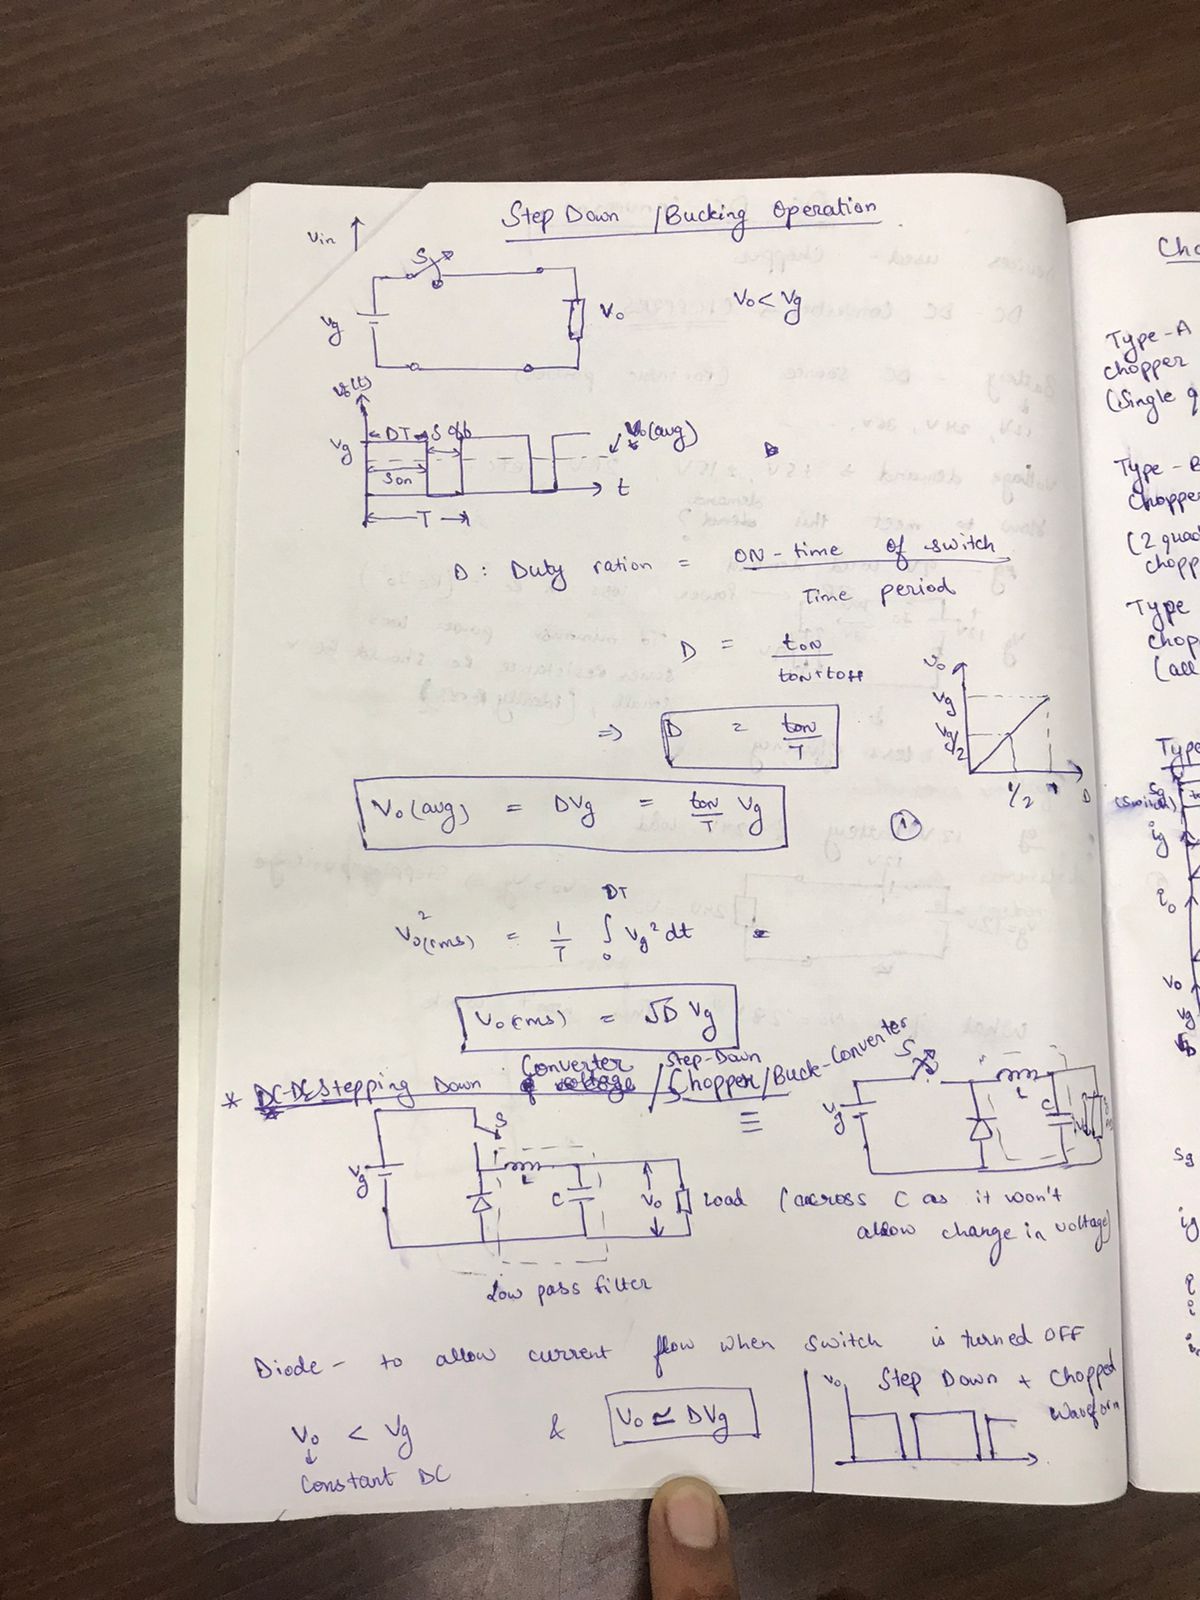 Step Down / Bucking Operation
Vin
S
Vg
Vo
Vo < Vg
Vo(t)
Vg
DT
S off
S on
Vo(avg)
t
T
D : Duty ration = ON-time of switch
Time period
D = tON
tON+toff
Vo
Vg
Vg/2
1/2
D
⇒ D = tON
T
Vo(avg) = DVg = tON Vg
T
①
DT
Vo²(rms) = 1/T ∫ Vg² dt
0
Vo(rms) = √D Vg
* DC-DC Stepping Down Converter / Step-Down Chopper / Buck-Converter
S
Vg
L
C
Vo
Load (across C as it won't
allow change in voltage)
≡
S
Vg
L
C
Low pass filter
Diode - to allow current flow when switch is turned OFF
Vo < Vg & Vo ≃ DVg
Constant DC
Vo
Step Down + Chopped
Waveform
Cho
Type-A
chopper
(Single q
Type-B
Choppe
(2 quad
chopp
Type
chop
(all
Type
Sg
(switch)
ig
Vo
Vg
Sg
ig